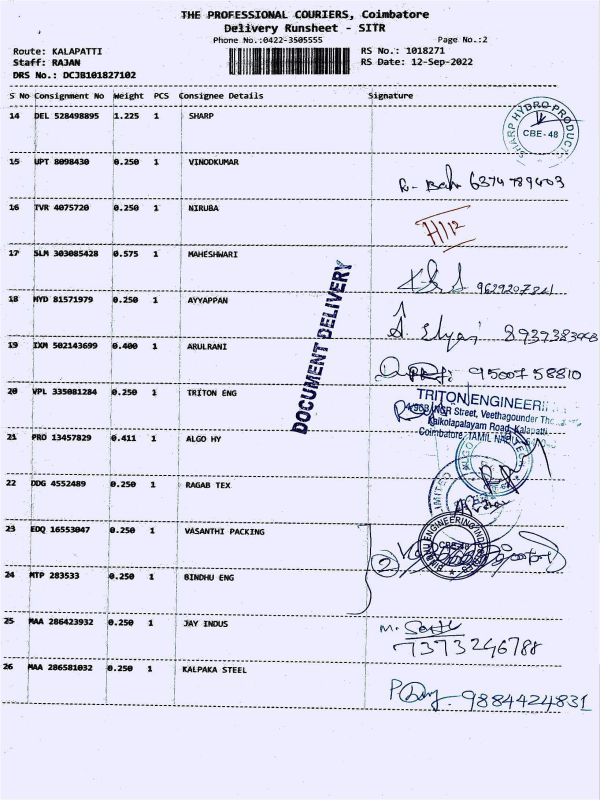 THE PROFESSIONAL COURIERS, Coimbatore
Delivery Runsheet - SITR
Phone No.:0422-3505555 Page No.:2
Route: KALAPATTI RS No.: 1018271
Staff: RAJAN RS Date: 12-Sep-2022
DRS No.: DCJB101827102
S No Consignment No Weight PCS Consignee Details Signature
14 DEL 528498895 1.225 1 SHARP
SHARP HYDRO PRODUCTS
CBE - 48
15 UPT 8098430 0.250 1 VINODKUMAR
6374789403
16 TVR 4075720 0.250 1 NIRUBA
17 SLM 303085428 0.575 1 MAHESHWARI
9629207321
18 HYD 81571979 0.250 1 AYYAPPAN
DOCUMENT DELIVERY
19 IXM 502143699 0.400 1 ARULRANI
9500758810
20 VPL 335081284 0.250 1 TRITON ENG
TRITON ENGINEERI
Street, Veethagounder
Kaikolapalayam Road, Kalapatti
Coimbatore, TAMIL
21 PRO 13457829 0.411 1 ALGO HY
22 DDG 4552489 0.250 1 RAGAB TEX
23 EDQ 16553047 0.250 1 VASANTHI PACKING
2
24 MTP 283533 0.250 1 BINDHU ENG
25 MAA 286423932 0.250 1 JAY INDUS
7373246788
26 MAA 286581032 0.250 1 KALPAKA STEEL
9884424831